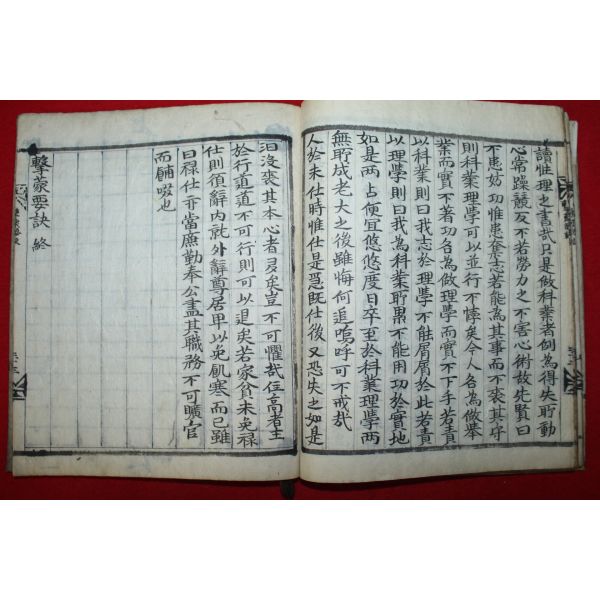 讀性理之書哉只是做科業者例為得失所動
心常躁競反不若勞力之不害心術故先賢曰
不患妨功惟患奪志若能為其事而不喪其守
則科業理學可以並行不悖矣今人名為做擧
業而實不著功名為做理學而實不下手若責
以科業則曰我志於理學不能屑屑於此若責
以理學則曰我為科業所累不能用功於實地
如是兩占便宜悠悠度日卒至於科業理學兩
無所成老大之後雖悔何追嗚呼可不戒哉
人於未仕時惟仕是急既仕後又恐失之如是
汩沒喪其本心者多矣豈不可懼哉位高者主
於行道道不可行則可以退矣若家貧未免祿
仕則須辭內就外辭尊居卑以免飢寒而已雖
曰祿仕亦當廉勤奉公盡其職務不可曠官
而餔啜也
擊蒙要訣終